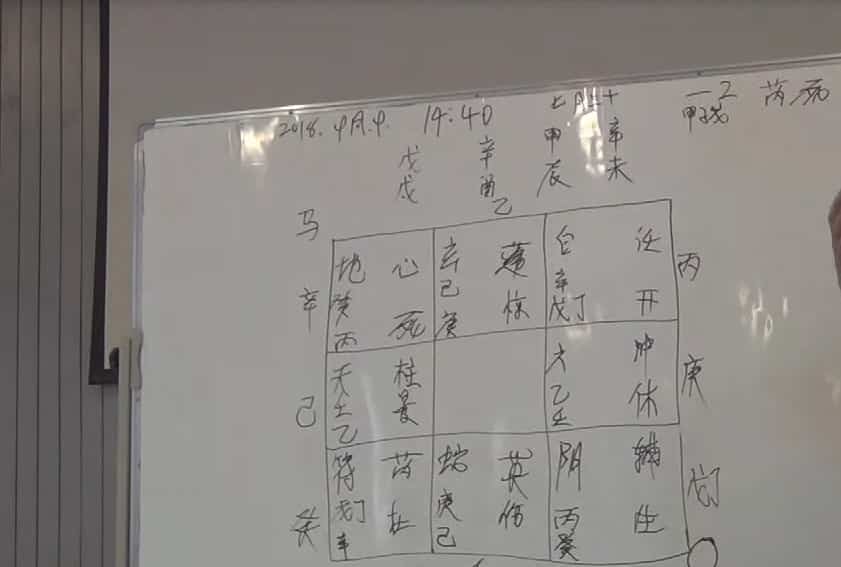 2018. 9月.9. 14:40 七月三十 一2 芮死
戊 辛 甲 辛 甲子戊
戌 酉 辰 未
马 乙
地 心 玄 蓬 白 任 丙
辛 癸 己 辛
丙 死 庚 惊 戊丁 开
天 柱 六 冲 庚
己 壬 景 乙 休
乙 壬
符 芮 蛇 英 阴 辅
戊丁 杜 庚 伤 丙 生 戊丁
癸 辛 己 癸